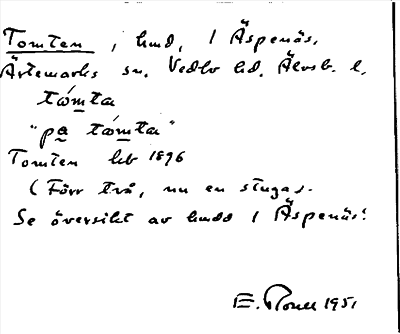 Tomten, hmd, 1 Äspenäs,
Ärtemarks sn. Vedbo hd. Älvsb. l.
tómta
"pa tómta"
Tomten hb 1896
(Förr två, nu en stuga).
Se översikt av hmdd 1 Äspenäs!
E. 1951